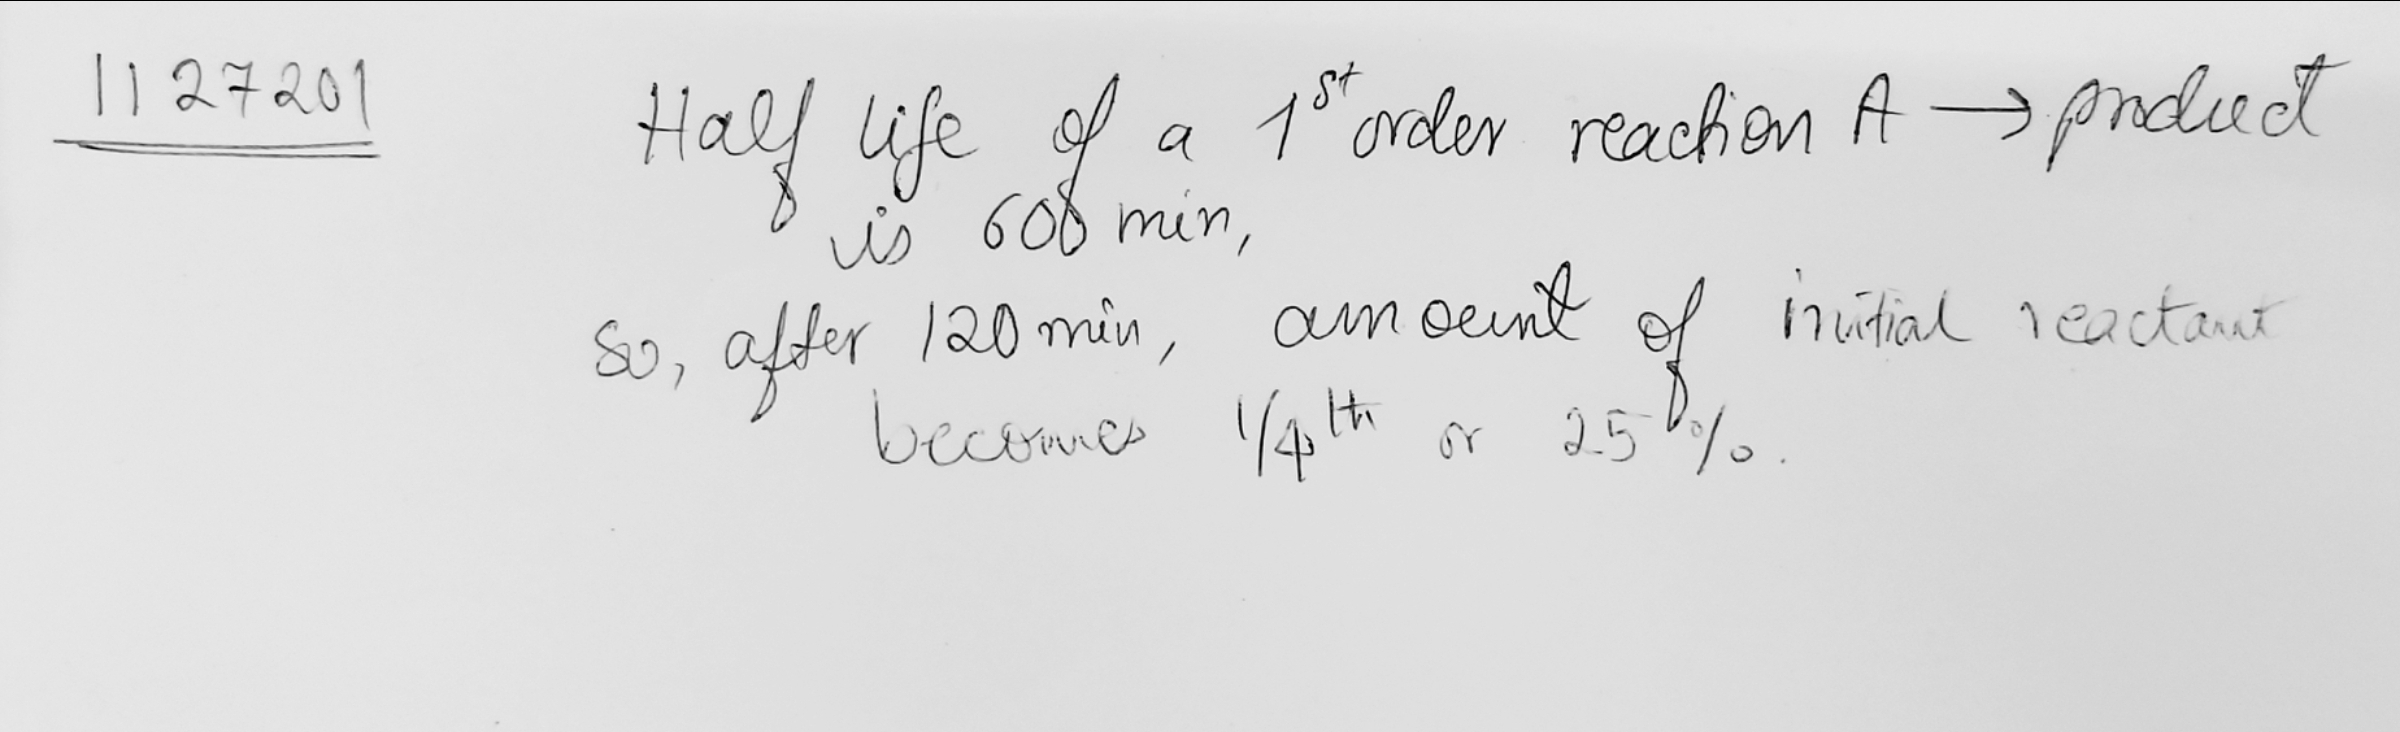 1127201
Half life of a 1st order reaction A → product
is 60 min,
so, after 120 min, amount of initial reactant
becomes 1/4th or 25%.